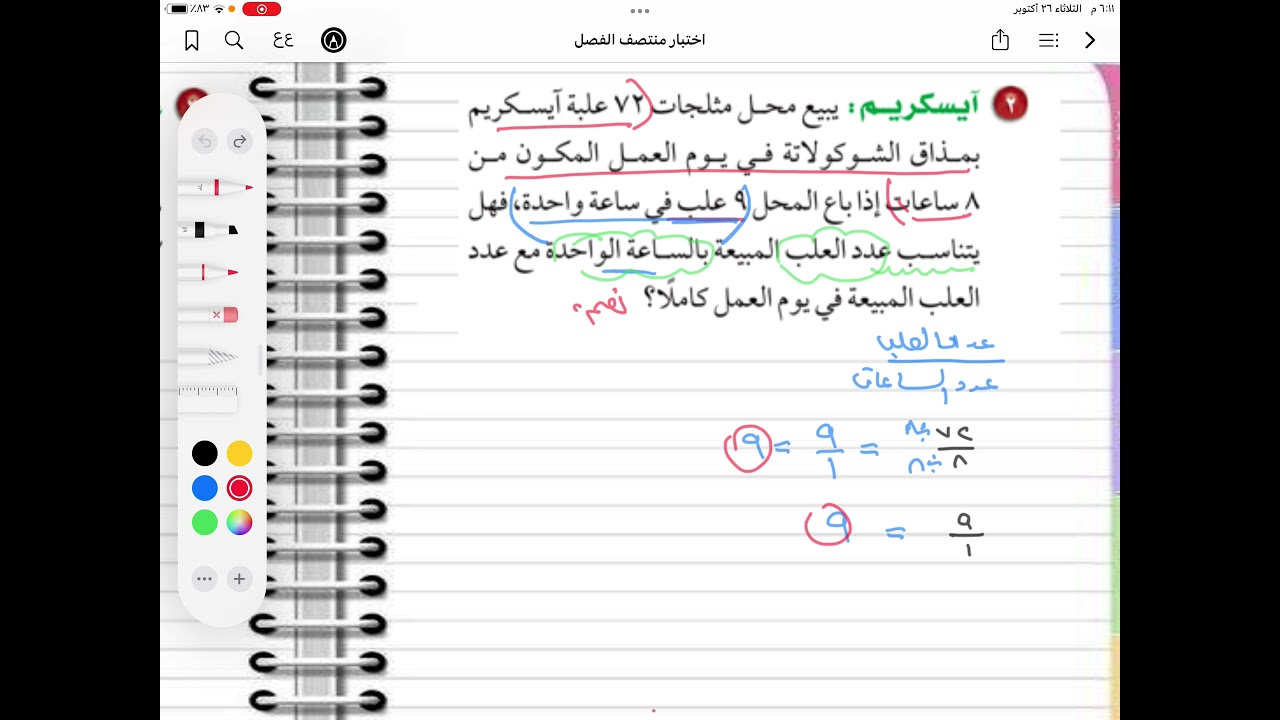 ٦:١١ م الثلاثاء ٢٦ أكتوبر
٨٣٪
اختبار منتصف الفصل
عع
٢ آيسكريم: يبيع محل مثلجات ٧٢ علبة آيسكريم
بمذاق الشوكولاتة في يوم العمل المكون من
٨ ساعات إذا باع المحل ٩ علب في ساعة واحدة، فهل
يتناسب عدد العلب المبيعة بالساعة الواحدة مع عدد
العلب المبيعة في يوم العمل كاملًا؟ نعم،
عدد العلب
عدد الساعات
٧٢ ÷٨ / ٨ ÷٨ = ٩ / ١ = ٩
٩ / ١ = ٩